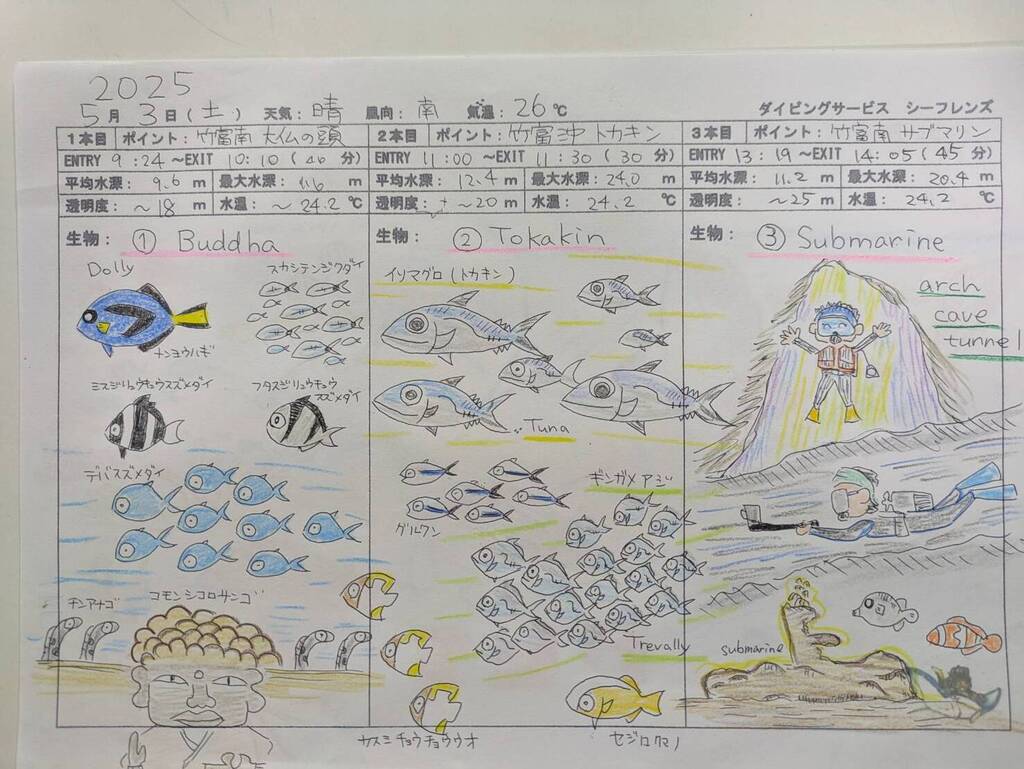 2025
5月 3日(土) 天気: 晴 風向: 南 気温: 26℃ ダイビングサービス シーフレンズ
1本目 ポイント: 竹富南 大仏の頭 2本目 ポイント: 竹富沖 トカキン 3本目 ポイント: 竹富南 サブマリン
ENTRY 9:24 ~EXIT 10:10 (46 分) ENTRY 11:00 ~EXIT 11:30 (30 分) ENTRY 13:19 ~EXIT 14:05 (45 分)
平均水深: 9.6 m 最大水深: m 平均水深: 12.4 m 最大水深: 24.0 m 平均水深: 11.2 m 最大水深: 20.4 m
透明度: ~18 m 水温: ~24.2 ℃ 透明度: ~20 m 水温: 24.2 ℃ 透明度: ~25 m 水温: 24.2 ℃
生物: ① Buddha 生物: ② Tokakin 生物: ③ Submarine
Dolly
スカシテンジクダイ
ナンヨウハギ
ミスジリュウキュウスズメダイ
フタスジリュウキュウ
スズメダイ
デバスズメダイ
チンアナゴ
コモンシコロサンゴ
イソマグロ(トカキン)
Tuna
グルクン
ギンガメアジ
Trevally
カスミチョウチョウウオ
セジロクマノ
arch
cave
tunnel
submarine